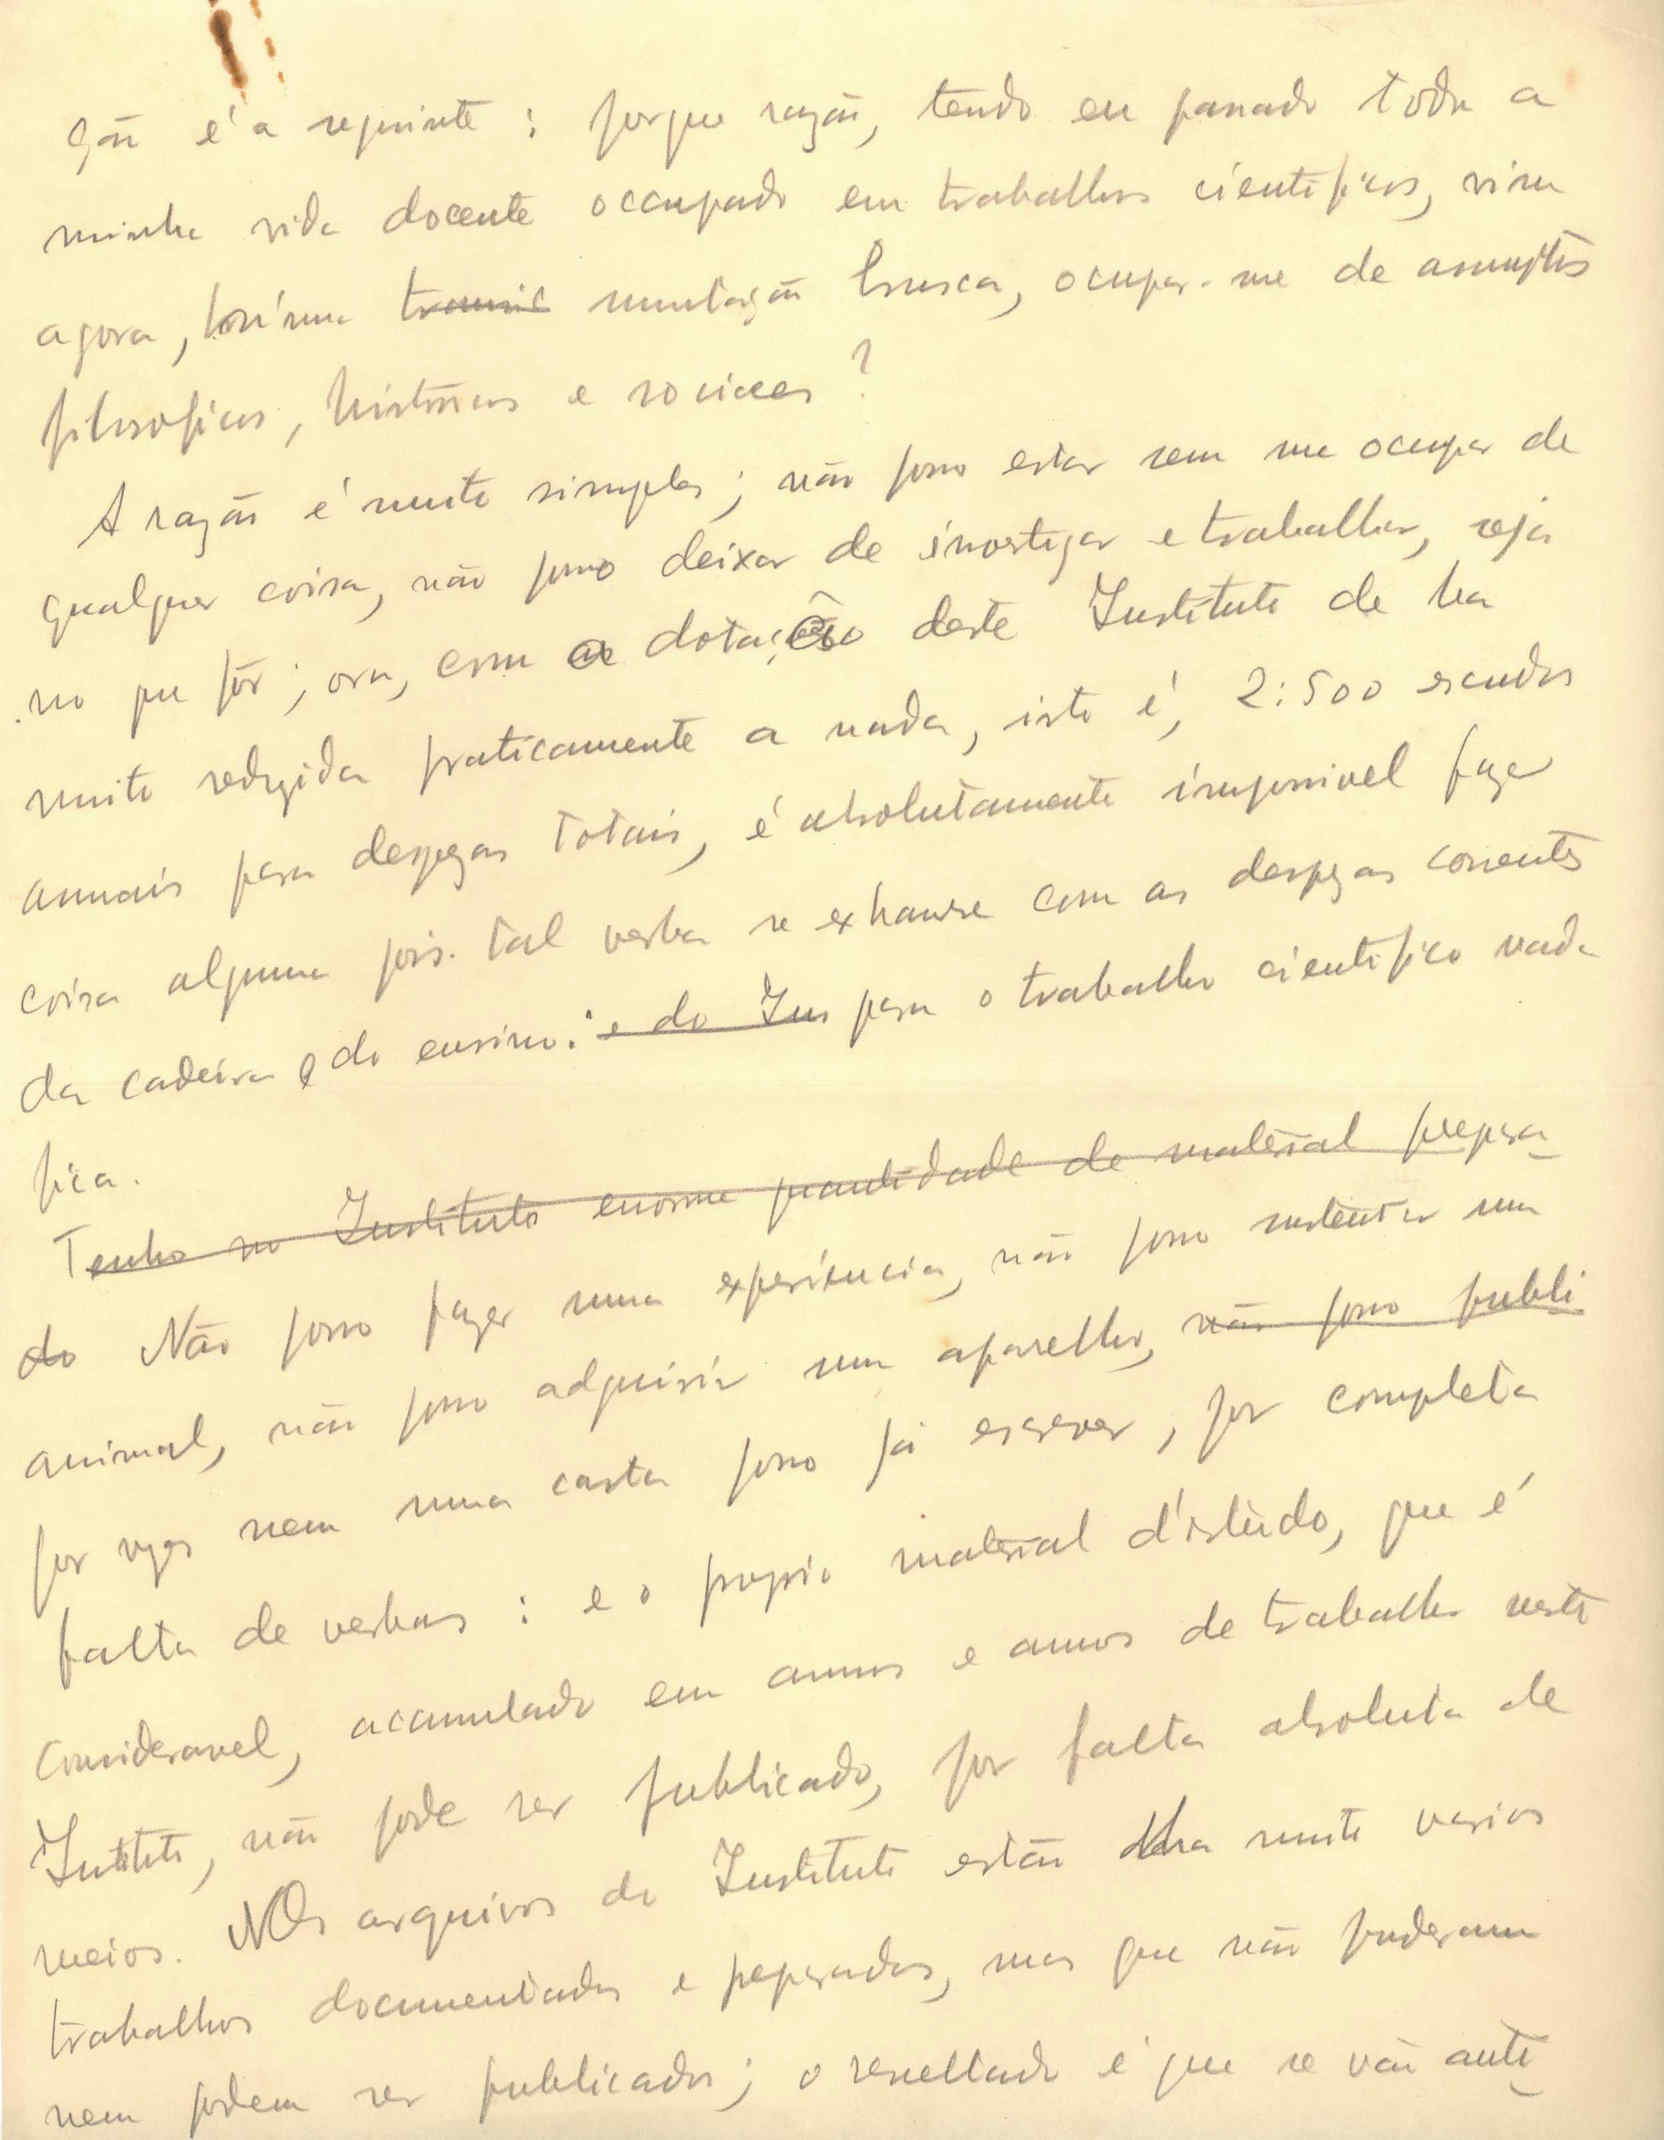 ção é a seguinte : porque razão, tendo eu passado toda a
minha vida docente occupado em trabalhos cientificos, vim
agora, numa mutação brusca, ocupar-me de assumptos
filosoficos, históricos e sociaes ?
A razão é muito simples; não posso estar sem me ocupar de
qualquer coisa, não posso deixar de investigar e trabalhar, seja
no que fôr; ora, com a dotação deste Instituto de ha
muito reduzida praticamente a nada, isto é, 2:500 escudos
annuais para despezas totais, é absolutamente impossivel fazer
coisa alguma pois tal verba se exhaure com as despezas correntes
da cadeira e do ensino: e do Ins para o trabalho cientifico nada
fica.
Tenho no Instituto enorme quantidade de material prepara-
do Não posso fazer uma experiencia, não posso sustentar um
animal, não posso adquirir um aparelho, não posso publi
por vezes nem uma carta posso já escrever, por completa
falta de verbas : e o proprio material d'estudo, que é
consideravel, acumulado em annos e annos de trabalho neste
Instituto, não pode ser publicado, por falta absoluta de
meios. Nos arquivos do Instituto estão ha muito varios
trabalhos documentados e preparados, mas que não puderam
nem podem ser publicados; o resultado é que se vão anti-